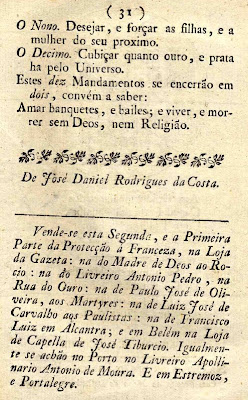 ( 31 )
O Nono. Desejar, e forçar as filhas, e a
mulher do seu proximo.
O Decimo. Cubiçar quanto ouro, e prata
ha pelo Universo.
Estes dez Mandamentos se encerrão em
dois, convém a saber:
Amar banquetes, e bailes; e viver, e mor-
rer sem Deos, nem Religião.
De José Daniel Rodrigues da Costa.
Vende-se esta Segunda, e a Primeira
Parte da Protecção á Franceza, na Loja
da Gazeta: na do Madre de Deos ao Ro-
cio: na do Livreiro Antonio Pedro, na
Rua do Ouro: na de Paulo José de Oli-
veira, aos Martyres: na de Luiz José de
Carvalho aos Paulistas: na de Francisco
Luiz em Alcantra; e em Belém na Loja
de Capella de José Tiburcio. Igualmen-
te se achão no Porto no Livreiro Apolli-
nario Antonio de Moura. E em Estremoz,
e Portalegre.